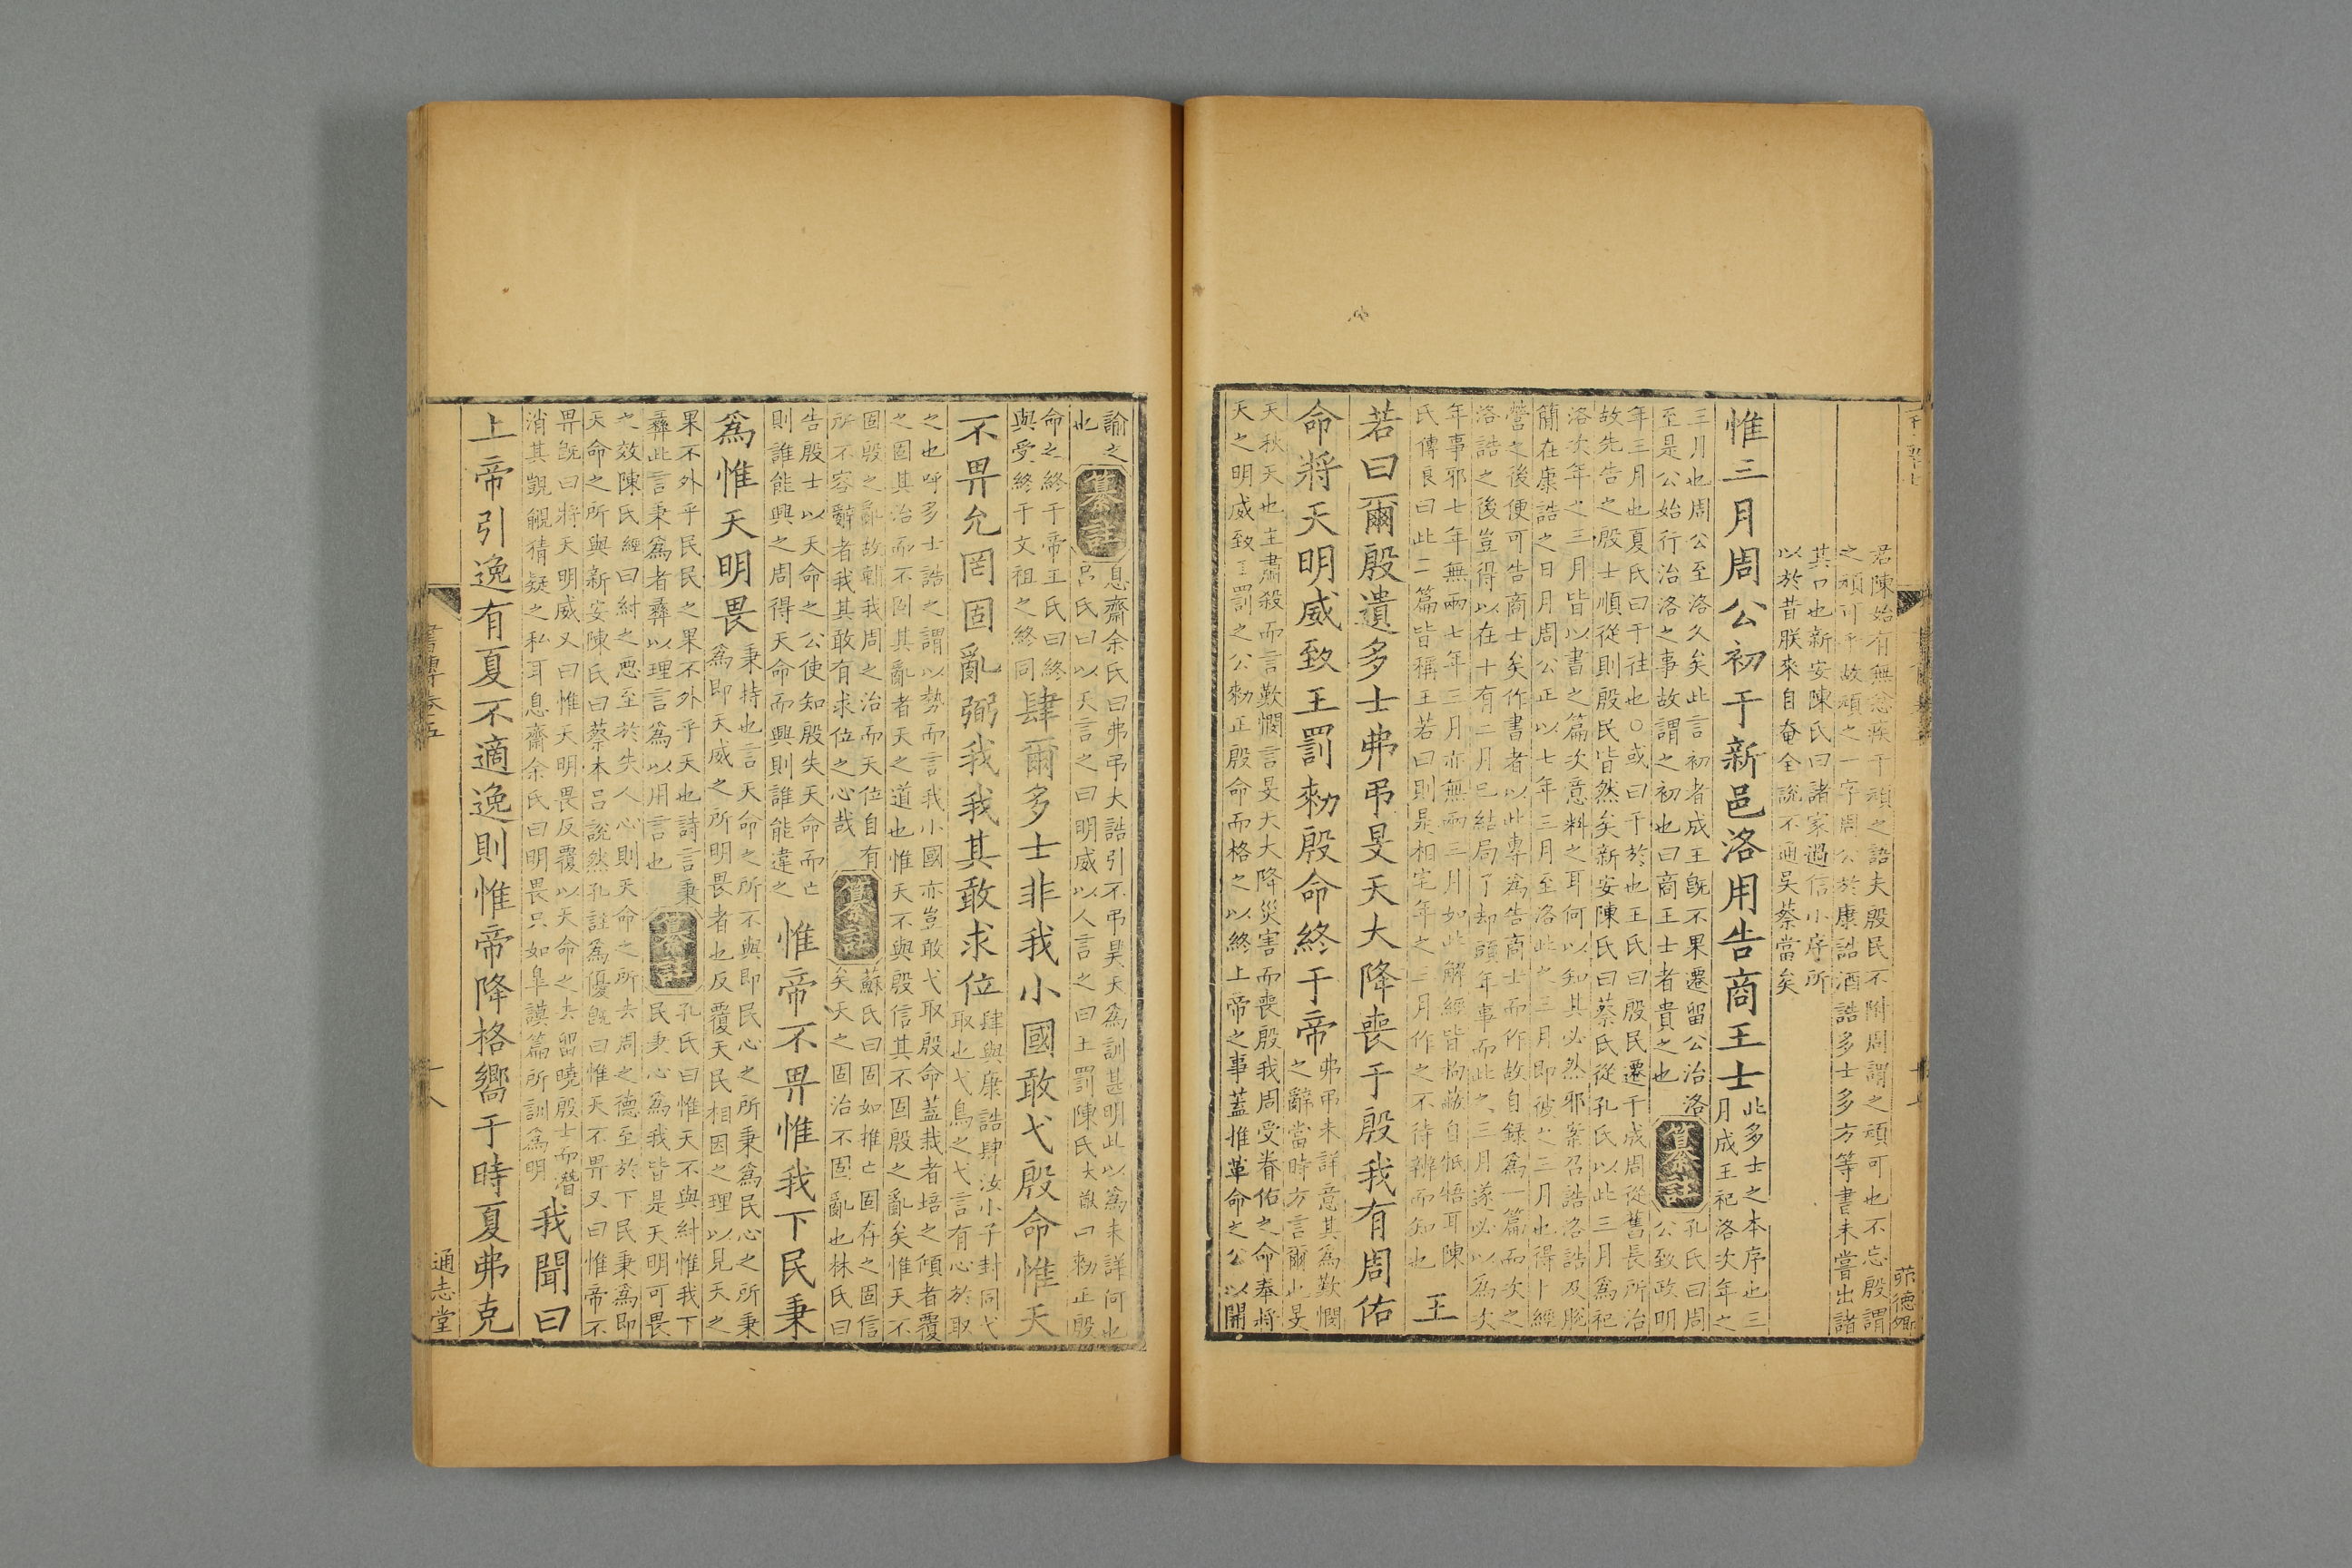 君陳始有無忿疾于頑之語夫殷民不附周謂之頑可也不忘殷謂
之頑可乎故頑之一字周公於康誥酒誥多士多方等書未嘗出諸
其口也新安陳氏曰諸家過信小序所
以於昔朕來自奄全說不通吴蔡當矣
惟三月周公初于新邑洛用告商王士
此多士之本序也三
月成王祀洛次年之
三月也周公至洛久矣此言初者成王旣不果遷留公治洛
至是公始行治洛之事故謂之初也曰商王士者貴之也
纂註
孔氏曰周
公致政明
年三月也夏氏曰于往也○或曰于於也王氏曰殷民遷于成周從舊長所治
故先告之殷士順從則殷民皆然矣新安陳氏曰蔡氏從孔氏以此三月為祀
洛次年之三月皆以書之篇次意料之耳何以知其必然邪案召誥洛誥及脫
簡在康誥之日月周公正以七年三月至洛此之三月即彼之三月也得卜經
營之後便可告商士矣作書者以此專為告商士而作故自録為一篇而次之
洛誥之後豈得以在十有二月已結局了却頭年事而此之三月遂必以為次
年事邪七年無兩七年三月亦無兩三月如此解經皆拘蔽自牴牾耳陳
氏傅良曰此二篇皆稱王若曰則是相宅年之三月作之不待辨而知也
王
若曰爾殷遺多士弗弔旻天大降喪于殷我有周佑
命將天明威致王罰勑殷命終于帝
弗弔未詳意其為歎憫
之辭當時方言爾也旻
天秋天也主肅殺而言歎憫言旻天大降災害而喪殷我周受眷佑之命奉將
天之明威致王罰之公勑正殷命而格之以終上帝之事蓋推革命之公以開
諭之
也
纂註
息齋余氏曰弗弔大誥引不弔昊天為訓甚明此以為未詳何也
呂氏曰以天言之曰明威以人言之曰王罰陳氏大猷曰勑正殷
命之終于帝王氏曰終
與受終于文祖之終同
肆爾多士非我小國敢弋殷命惟天
不畀允罔固亂弼我我其敢求位
肆與康誥肆汝小子封同弋
取也弋鳥之弋言有心於取
之也呼多士誥之謂以勢而言我小國亦豈敢弋取殷命蓋栽者培之傾者覆
之固其治而不固其亂者天之道也惟天不與殷信其不固殷之亂矣惟天不
固殷之亂故輔我周之治而天位自有
所不容辭者我其敢有求位之心哉
纂註
蘇氏曰固如推亡固存之固信
矣天之固治不固亂也林氏曰
告殷士以天命之公使知殷失天命而亡
則誰能興之周得天命而興則誰能違之
惟帝不畀惟我下民秉
為惟天明畏
秉持也言天命之所不與即民心之所秉為民心之所秉
為即天威之所明畏者也反覆天民相因之理以見天之
果不外乎民民之果不外乎天也詩言秉
彝此言秉為者彝以理言為以用言也
纂註
孔氏曰惟天不與紂惟我下
民秉心為我皆是天明可畏
之效陳氏經曰紂之惡至於失人心則天命之所去周之德至於下民秉為即
天命之所與新安陳氏曰蔡本呂說然孔註為優旣曰惟天不畀又曰惟帝不
畀旣曰將天明威又曰惟天明畏反覆以天命之去留曉殷士而潛
消其覬覦猜疑之私耳息齋余氏曰明畏只如臯謨篇所訓為明
我聞曰
上帝引逸有夏不適逸則惟帝降格嚮于時夏弗克
通志堂